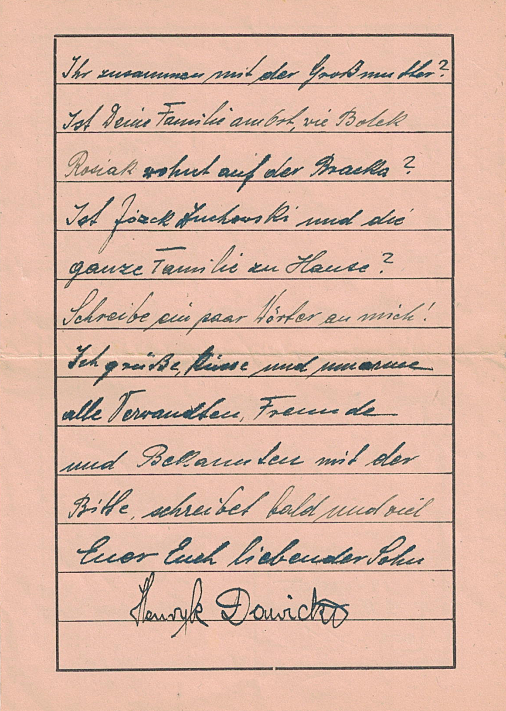 Ihr zusammen mit der Großmutter?
Ist Deine Familie am Ort, wie Bolek
Rosiak wohnt auf der Bracka?
Ist Józek Żuchowski und die
ganze Familie zu Hause?
Schreibe ein paar Wörter an mich!
Ich grüße, küsse und umarme
alle Verwandten, Freunde
und Bekannten mit der
Bitte, schreibet bald und viel
Euer Euch liebender Sohn
Henryk Dawicki